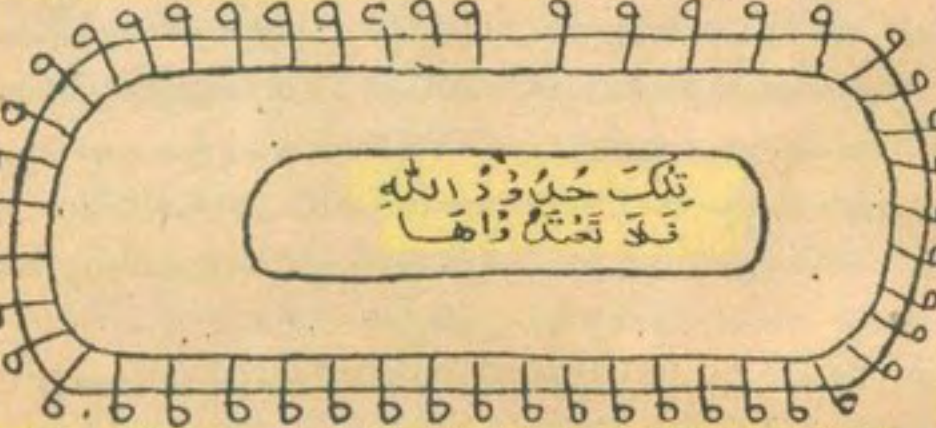 تِلْكَ حُدُوْدُ اللّٰهِ
فَلَا تَعْتَدُوْاهَا